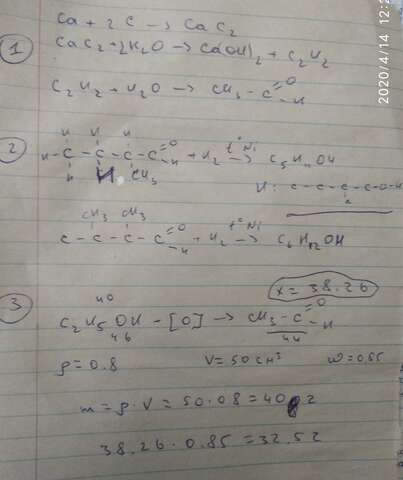 2020/4/14 12:2
1
Ca + 2C → CaC2
CaC2 + 2H2O → Ca(OH)2 + C2H2
C2H2 + H2O → CH3 - C =O - H
2
H H H
H - C - C - C - C =O - H + H2 t° Ni → C5H11OH
H H CH3
H: C - C - C - C - O - H
CH3 CH3
C - C - C - C =O - H + H2 t° Ni → C6H12OH
x = 38.26
3
40
C2H5OH - [O] → CH3 - C =O - H
46 44
ρ = 0.8 V = 50 cm³ w = 0.85
m = ρ · V = 50 · 08 = 40 г
38.26 · 0.85 = 32.52